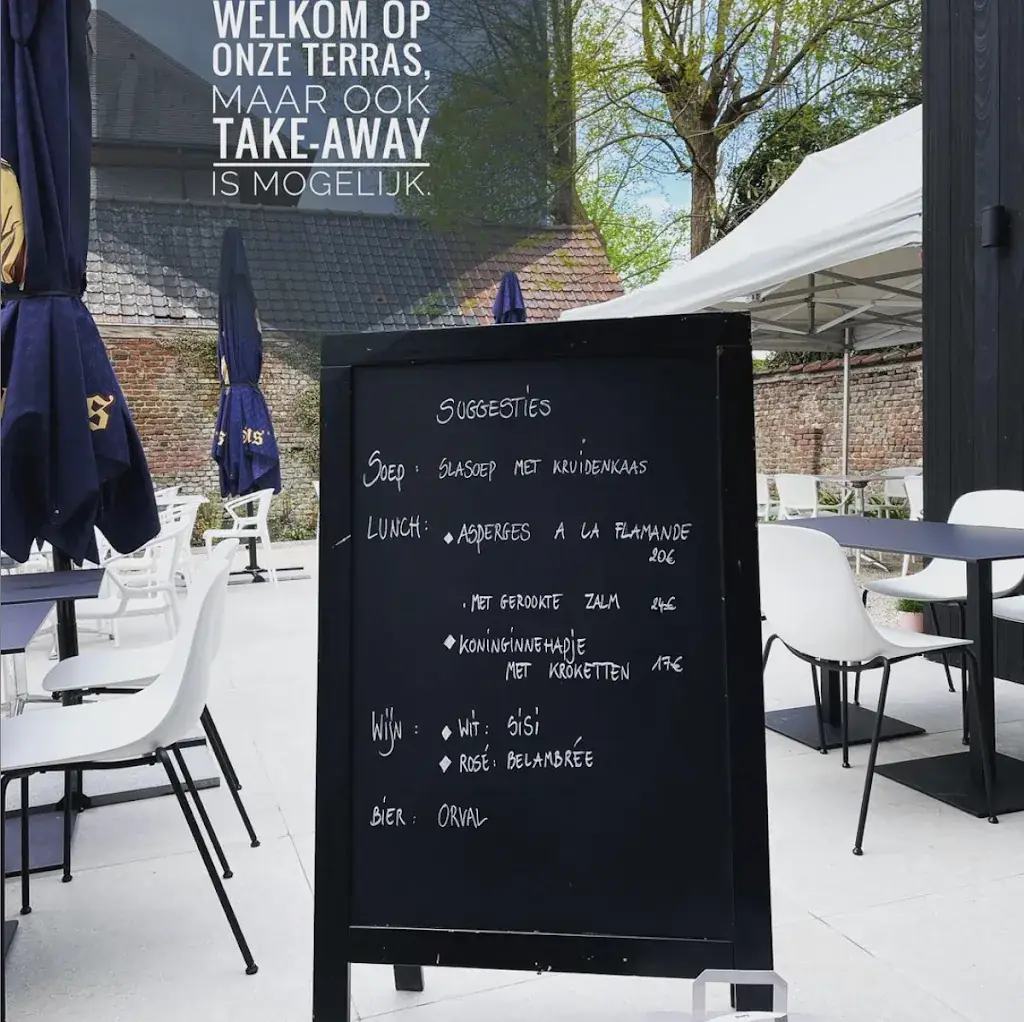 WELKOM OP
ONZE TERRAS,
MAAR OOK
TAKE-AWAY
IS MOGELIJK.
SUGGESTIES
SOEP: SLASOEP MET KRUIDENKAAS
LUNCH: ◆ ASPERGES A LA FLAMANDE
20€
. MET GEROOKTE ZALM 24€
◆ KONINGINNEHAPJE
MET KROKETTEN 17€
WIJN: ◆ WIT: SISI
◆ ROSÉ: BELAMBRÉE
BIER: ORVAL